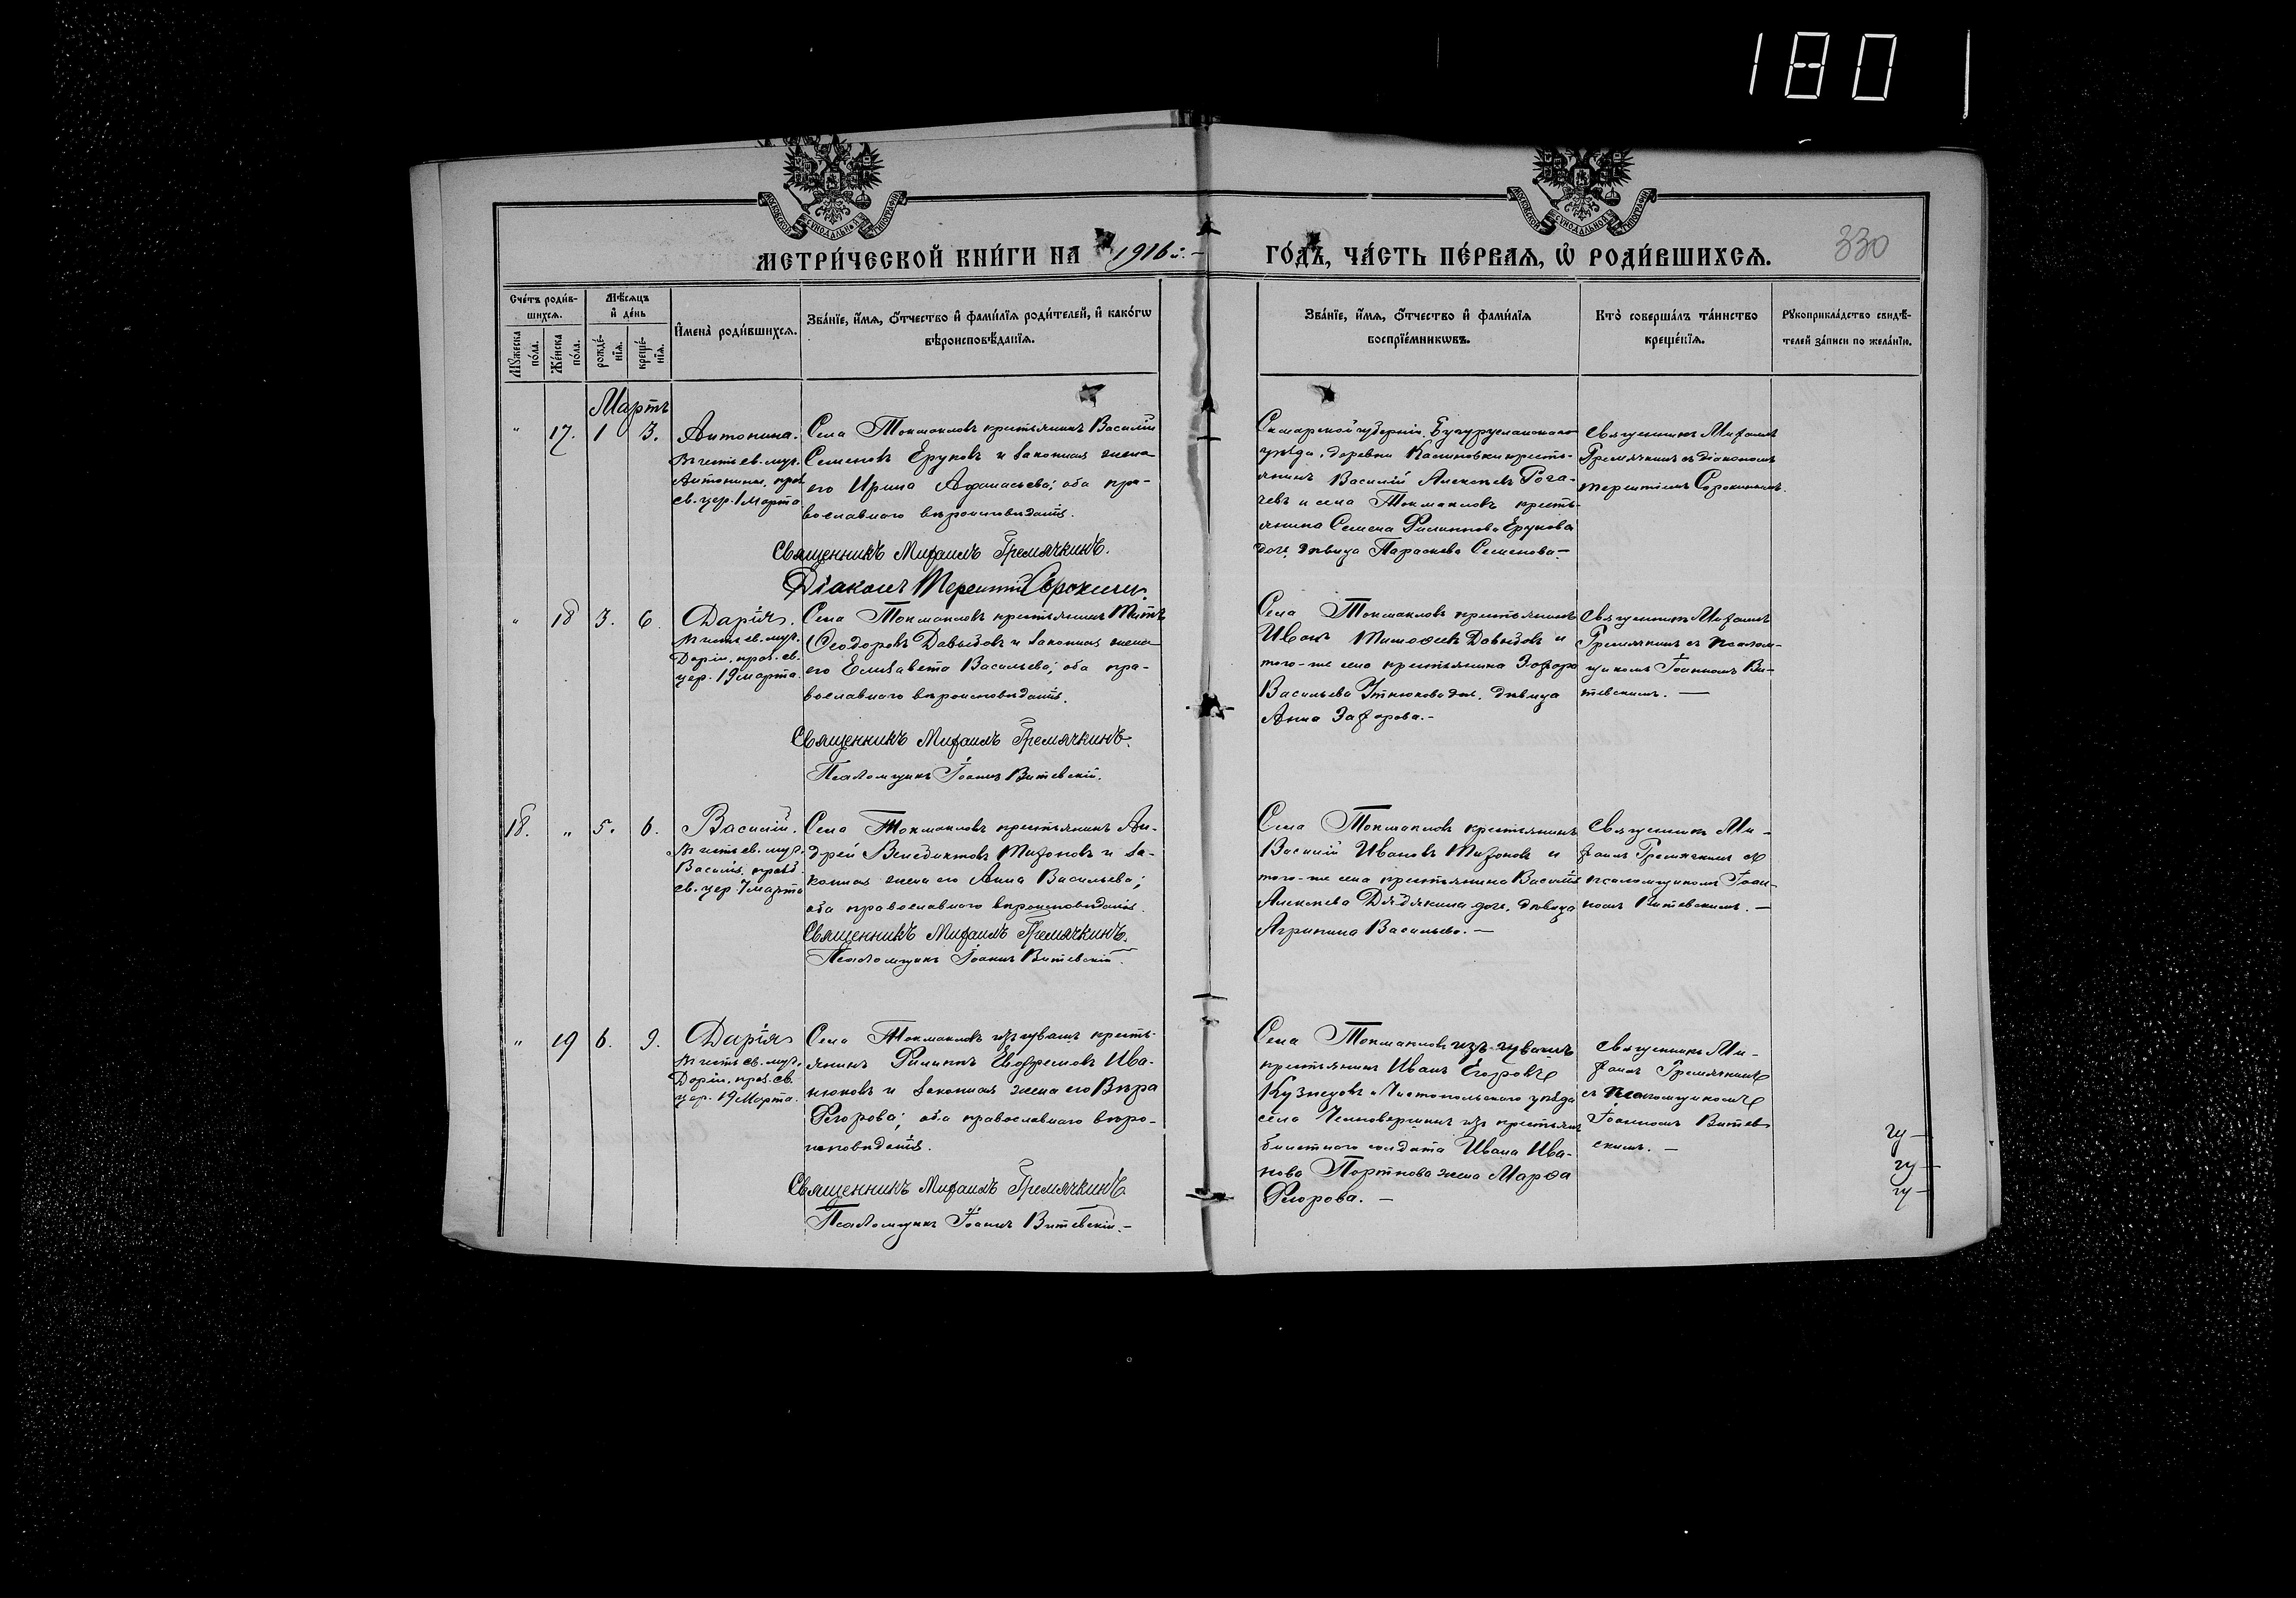 180
МОСКОВСКОЙ СѴНОДАЛЬНОЙ ТИПОГРАФІИ
МОСКОВСКОЙ СѴНОДАЛЬНОЙ ТИПОГРАФІИ
МЕТРИ́ЧЕСКОЙ КНИ́ГИ НА 1916й.- ГО́ДЪ, ЧА́СТЬ ПЕ́РВАѦ, Ѡ҆ РОДИ́ВШИХСѦ.
330
Сче́тъ роди́в-
шихсѧ.
Мꙋ́жеска по́ла.
Же́нска по́ла.
Мѣ́сѧцъ
и҆ де́нь
рожде́-
нїѧ.
креще́-
нїѧ.
И҆мена̀ роди́вшихсѧ.
Зва́нїе, и҆́мѧ, ѻ҆́тчество и҆ фами́лїѧ роди́телей, и҆ како́гѡ
вѣроисповѣ́данїѧ.
Зва́нїе, и҆́мѧ, ѻ҆́тчество и҆ фами́лїѧ
воспрїе́мникѡвъ.
Кто̀ соверша́лъ та́инство
креще́нїѧ.
Рꙋкоприкла́дство свидѣ́-
телей за́писи по жела́нїю.
Мартъ
" 17. 1 3.
Антонина.
Въ честь св. муч.
Антонины, праз.
св. цер. 1 марта
Села Токмаклов крестьянинъ Василій
Семенов Еруков и законная жена
его Ирина Афанасьева; оба пра-
вославнаго вѣроисповѣданія.
Священникъ Михаилъ Гремячкинъ.
Діаконъ Терентій Сорокинъ.
Самарской губерніи, Бугурусланскаго
уѣзда, деревни Калиновки кресть-
янинъ Василій Алексѣев Рога-
чев и села Токмаклов кресть-
янина Семена Филиппова Ерукова
доч. дѣвица Параскева Семенова.-
Священник Михаил
Гремячкин съ діаконом
Терентіем Сорокиным.
" 18 3. 6.
Дарія.
Въ честь св. муч.
Даріи, праз. св.
цер. 19 марта.
Села Токмаклов крестьянин Титъ
Ѳеодоровъ Давыдов и законная жена
его Елизавета Васильева; оба пра-
вославнаго вѣроисповѣданія.
Священникъ Михаилъ Гремячкинъ.
Псаломщикъ Іоаннъ Витевскій.
Села Токмаклов крестьянин
Иван Тимоѳеев Давыдов и
того-же села крестьянина Захара
Васильева доч. дѣвица
Анна Захарова.-
Священник Михаил
Гремячкин съ псалом-
щиком Іоанном Ви-
тевским. —
18. " 5. 6.
Василій.
Въ честь св. муч.
Василія, празд.
св. цер. 7 марта
Села Токмаклов крестьянинъ Ан-
дрей Венедиктов Тихонов и за-
конная жена его Анна Васильева;
оба православнаго вѣроисповѣданія.
Священникъ Михаилъ Гремячкинъ.
Псаломщикъ Іоаннъ Витевскій.
Села Токмаклов крестьянин
Василій Иванов Тихонов и
того-же села крестьянина Василія
Алексѣева Дядякина доч. дѣвица
Агрипина Васильева. —
Священник Ми-
хаил Гремячкин съ
псаломщиком Іоан-
ном Витевским. —
" 19 6. 9.
Дарія
Въ честь св. муч.
Даріи, праз. св.
цер. 19 Марта.
Села Токмаклов изъ чуваш кресть-
янинъ Филиппъ Евфремов Ива-
нюков и законная жена его Вѣра
Егорова; оба православнаго вѣро-
исповѣданія.
Священникъ Михаилъ Гремячкинъ
Псаломщикъ Іоаннъ Витевскій.-
Села Токмаклов изъ чуваш
крестьянин Иван Егоров
Кузнецов и Чистопольскаго уѣзда
села изъ крестьян
билетнаго солдата Ивана Ива-
нова Портнова жена Марѳа
Егорова. —
Священник Ми-
хаил Гремячкин
съ псаломщиком
Іоанном Витев-
ским. —